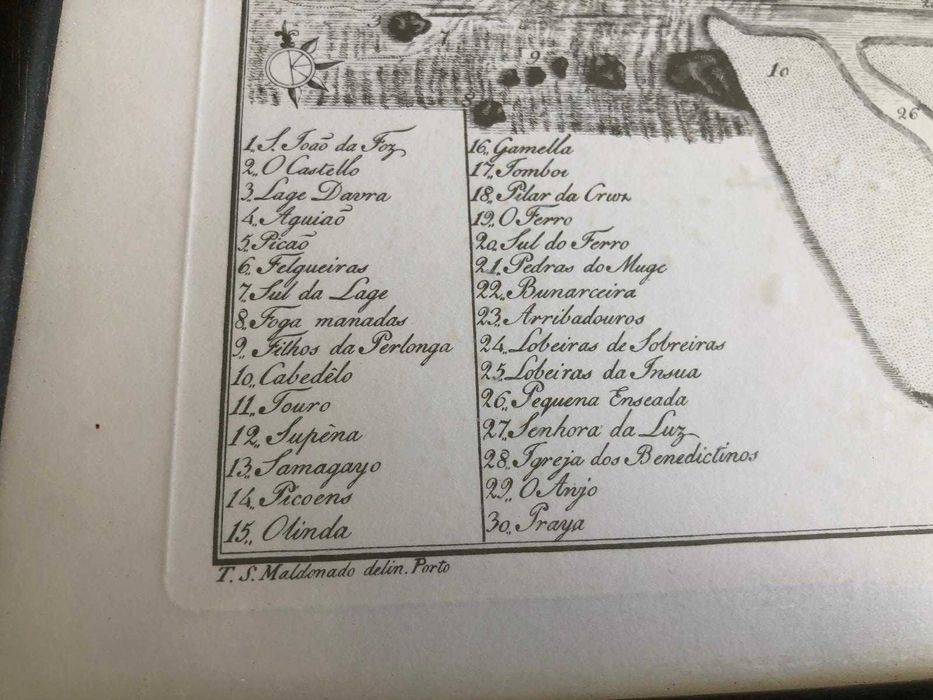 3
7
9
8
10
26
1,, S. João da Foz
2,, O Castello
3,, Lage Davra
4,, Aguião
5,, Picão
6,, Felgueiras
7,, Sul da Lage
8,, Foga manadas
9,, Filhos da Perlonga
10,, Cabedêlo
11,, Touro
12,, Supêna
13,, Samagayo
14,, Picoens
15,, Olinda
16,, Gamella
17,, Tomboi
18,, Pilar da Cruz
19,, O Ferro
20,, Sul do Ferro
21,, Pedras do Muge
22,, Bunarceira
23,, Arribadouros
24,, Lobeiras de Sobreiras
25,, Lobeiras da Insua
26,, Pequena Enseada
27,, Senhora da Luz
28,, Igreja dos Benedictinos
29,, O Anjo
30,, Praya
T. S. Maldonado delin. Porto